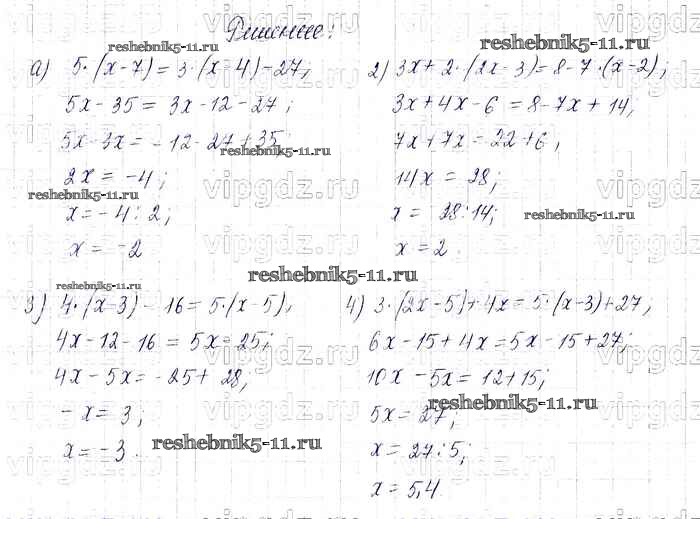 Решение:
а) 5·(x-7)=3·(x-4)-27;
5x-35=3x-12-27;
5x-3x=-12-27+35;
2x=-4;
x=-4:2;
x=-2
2) 3x+2·(2x-3)=8-7·(x-2);
3x+4x-6=8-7x+14;
7x+7x=22+6;
14x=28;
x=28:14;
x=2
3) 4·(x-3)-16=5·(x-5);
4x-12-16=5x-25;
4x-5x=-25+28;
-x=3;
x=-3.
4) 3·(2x-5)+4x=5·(x-3)+27;
6x-15+4x=5x-15+27;
10x-5x=12+15;
5x=27;
x=27:5;
x=5,4
reshebnik5-11.ru
reshebnik5-11.ru
reshebnik5-11.ru
reshebnik5-11.ru
reshebnik5-11.ru
reshebnik5-11.ru
reshebnik5-11.ru
reshebnik5-11.ru
reshebnik5-11.ru
vipgdz.ru
vipgdz.ru
vipgdz.ru